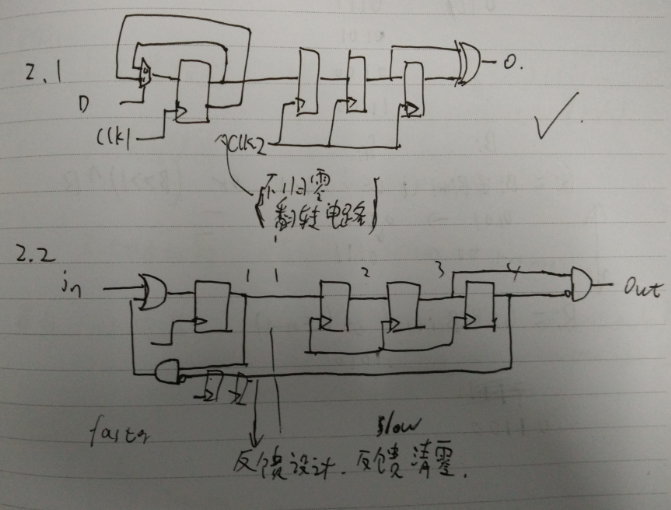 2.1
D
Clk1
Clk2
O.
不归零
翻转电路
2.2
in
1 1 2 3 4
Out
faster
slow
反馈设计. 反馈清零.